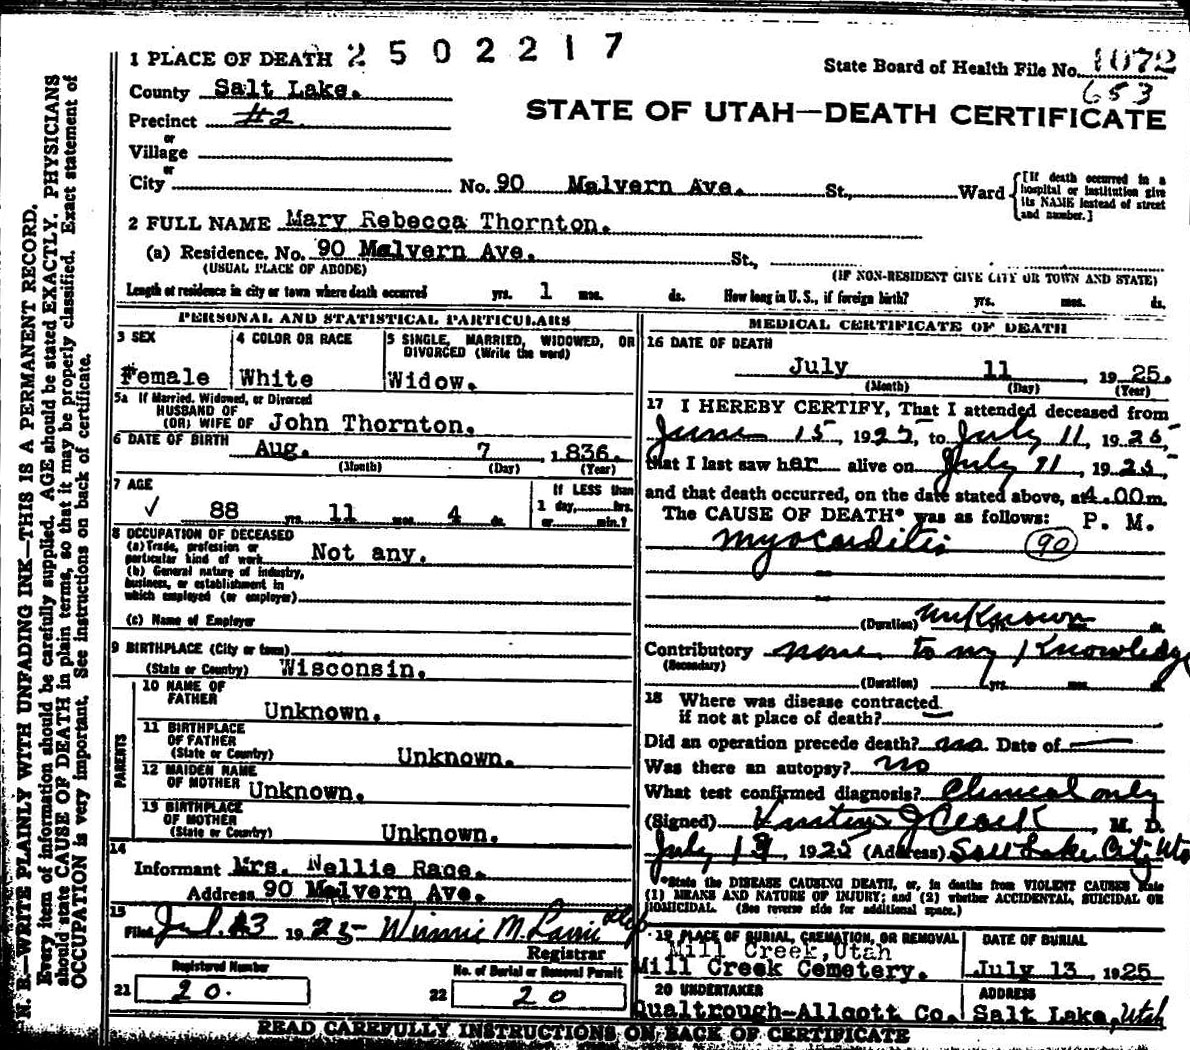 1 PLACE OF DEATH 2 5 0 2 2 1 7
State Board of Health File No. 1072
653
County Salt Lake.
STATE OF UTAH—DEATH CERTIFICATE
Precinct #2.
or
Village
or
City No. 90 Malvern Ave. St., Ward
[If death occurred in a hospital or institution give its NAME instead of street and number.]
2 FULL NAME Mary Rebecca Thornton.
(a) Residence. No. 90 Malvern Ave. St.,
(USUAL PLACE OF ABODE) (IF NON-RESIDENT GIVE CITY OR TOWN AND STATE)
Length of residence in city or town where death occurred yrs. 1 mos. ds. How long in U. S., if foreign birth? yrs. mos. ds.
PERSONAL AND STATISTICAL PARTICULARS
3 SEX
Female
4 COLOR OR RACE
White
5 SINGLE, MARRIED, WIDOWED, OR
DIVORCED (Write the word)
Widow.
5a If Married, Widowed, or Divorced
HUSBAND OF
(OR) WIFE OF John Thornton.
6 DATE OF BIRTH Aug. 7 1836.
(Month) (Day) (Year)
7 AGE
✓ 88 yrs. 11 mos. 4 ds.
If LESS than
1 day, hrs.
or min.?
8 OCCUPATION OF DECEASED
(a) Trade, profession or
particular kind of work Not any.
(b) General nature of industry,
business, or establishment in
which employed (or employer)
(c) Name of Employer
9 BIRTHPLACE (City or town)
(State or Country) Wisconsin.
PARENTS
10 NAME OF
FATHER Unknown.
11 BIRTHPLACE
OF FATHER
(State or Country) Unknown.
12 MAIDEN NAME
OF MOTHER Unknown.
13 BIRTHPLACE
OF MOTHER
(State or Country) Unknown.
14
Informant Mrs. Nellie Race.
Address 90 Malvern Ave.
15
Filed Jul. 13 1925- Winnie M.
Registrar
Registered Number
21 20.
No. of Burial or Removal Permit
22 20
MEDICAL CERTIFICATE OF DEATH
16 DATE OF DEATH
July 11, 1925.
(Month) (Day) (Year)
17 I HEREBY CERTIFY, That I attended deceased from
June 15, 1925, to July 11, 1925,
that I last saw her alive on July 11, 1925
and that death occurred, on the date stated above, at 4.00 m.
The CAUSE OF DEATH* was as follows: P. M.
Myocarditis 90
(Duration) unknown ds.
Contributory none to my Knowledge
(Secondary)
(Duration) yrs. mos. ds.
18 Where was disease contracted
if not at place of death?
Did an operation precede death? no. Date of
Was there an autopsy? no
What test confirmed diagnosis? Clinical only
(Signed) J Clark, M. D.
July 13, 1925 (Address) Salt Lake City Uto
*State the DISEASE CAUSING DEATH, or, in deaths from VIOLENT CAUSES state
(1) MEANS AND NATURE OF INJURY; and (2) whether ACCIDENTAL, SUICIDAL OR
HOMICIDAL. (See reverse side for additional space.)
19 PLACE OF BURIAL, CREMATION, OR REMOVAL
Mill Creek, Utah
Mill Creek Cemetery.
DATE OF BURIAL
July 13, 1925
20 UNDERTAKER
Qualtrough-Allcott Co.
ADDRESS
Salt Lake, Utah
READ CAREFULLY INSTRUCTIONS ON BACK OF CERTIFICATE
N. B.—WRITE PLAINLY WITH UNFADING INK—THIS IS A PERMANENT RECORD.
Every item of information should be carefully supplied. AGE should be stated EXACTLY. PHYSICIANS
should state CAUSE OF DEATH in plain terms, so that it may be properly classified. Exact statement of
OCCUPATION is very important. See instructions on back of certificate.